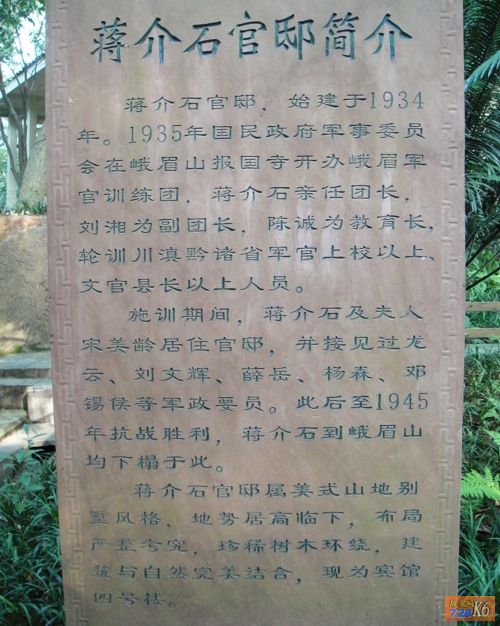 蒋介石官邸简介
蒋介石官邸，始建于1934
年。1935年国民政府军事委员
会在峨眉山报国寺开办峨眉军
官训练团，蒋介石亲任团长，
刘湘为副团长，陈诚为教育长，
轮训川滇黔诸省军官上校以上、
文官县长以上人员。
施训期间，蒋介石及夫人
宋美龄居住官邸，并接见过龙
云、刘文辉、薛岳、杨森、邓
锡侯等军政要员。此后至1945
年抗战胜利，蒋介石到峨眉山
均下榻于此。
蒋介石官邸属美式山地别
墅风格，地势居高临下，布局
严整考究，珍稀树木环绕，建
筑与自然完美结合，现为宾馆
四号楼。
728K6